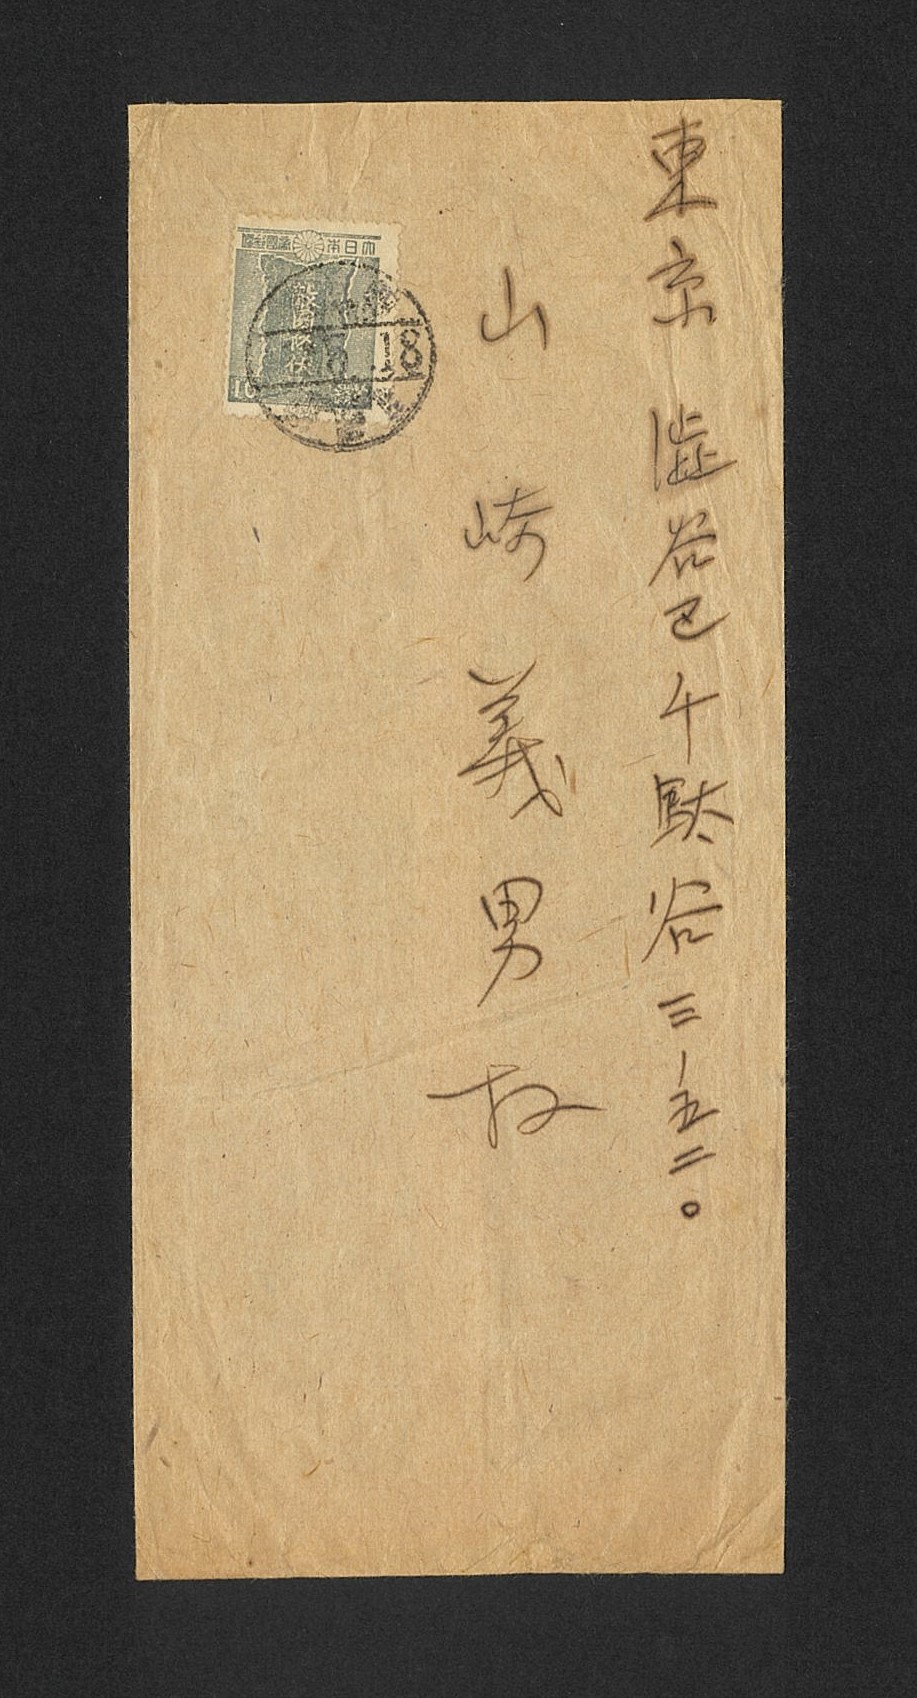 東京澁谷区千駄谷三ノ五二〇
山崎義男様
大日本帝國郵便
敵国降伏
10
18